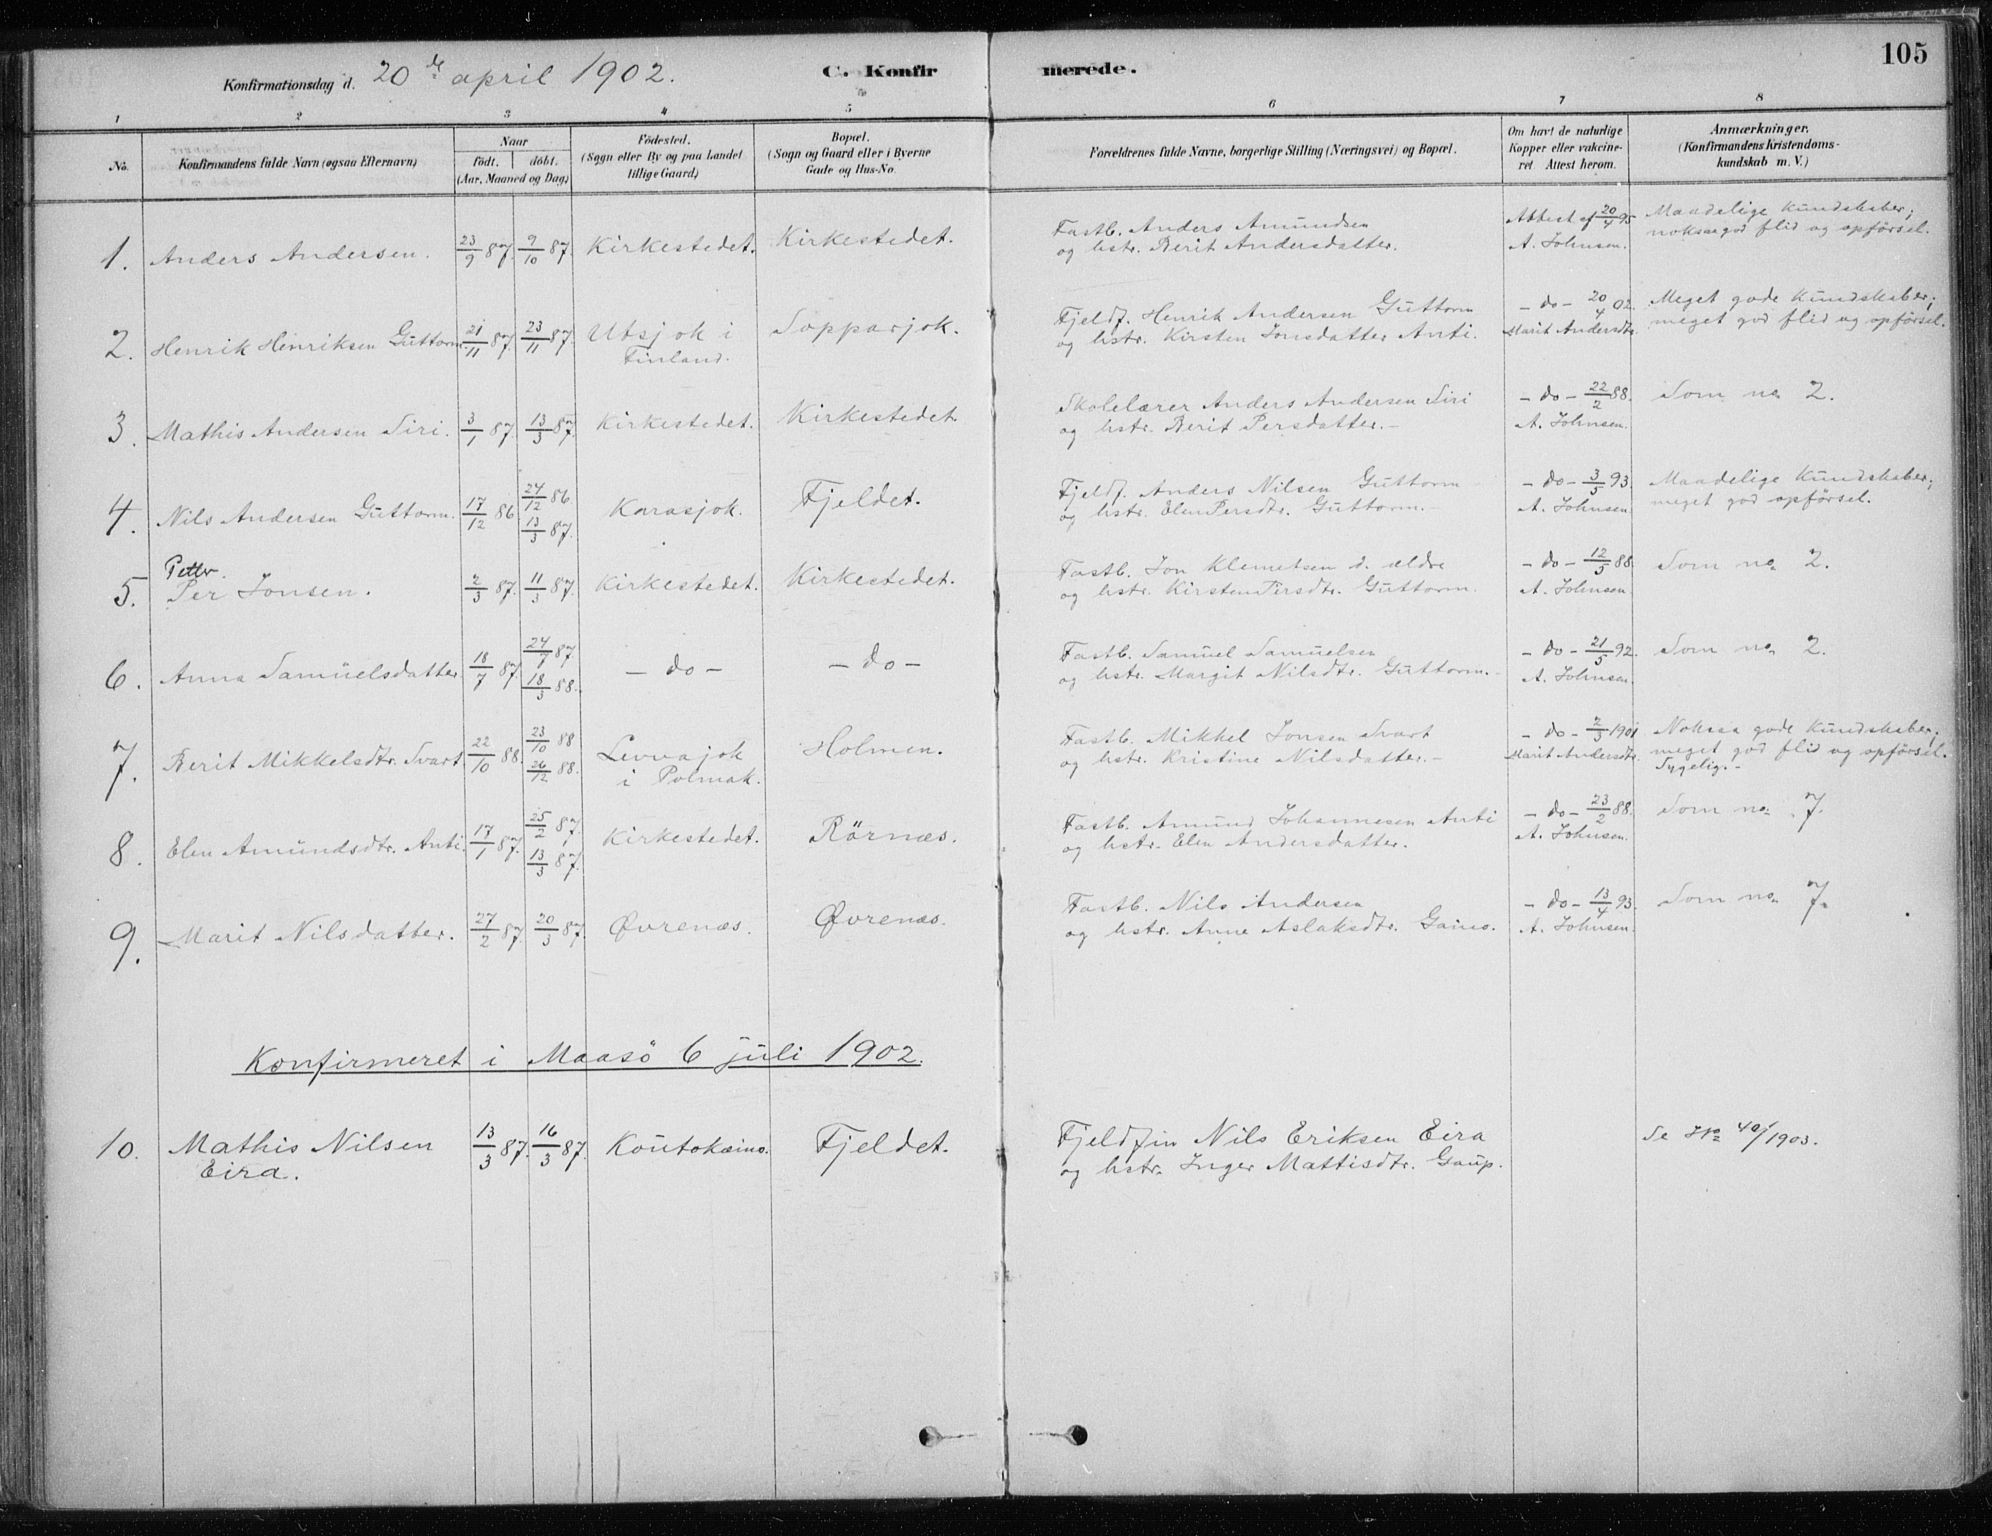 105
Konfirmationsdag d. 20de april 1902. C. Konfirmerede.
1 2 3 4 5 6 7 8
No. Konfirmandens fulde Navn (ogsaa Efternavn) Naar født. døbt. (Aar, Maaned og Dag) Fødested. (Sogn eller By og paa Landet tillige Gaard) Bopæl. (Sogn og Gaard eller i Byerne Gade og Hus-No. Forældrenes fulde Navne, borgerlige Stilling (Næringsvei) og Bopæl. Om havt de naturlige Kopper eller vakcineret. Attest herom. Anmærkninger. (Konfirmandens Kristendomskundskab m. V.)
1. Anders Andersen. 23/9 87. 9/10 87. Kirkestedet. Kirkestedet. Fastb. Anders Amundsen Attest af 20/4 95 Maadelige Kundskaber;
og hstr. Berit Andersdatter. A. Johnsen. noksaa god flid og opførsel.
2. Henrik Henriksen Guttorm 21/11 87. 23/11 87. Utsjok i Sopparjok. Fjeldf. Henrik Andersen Guttorm – do – 20/4 02. Meget gode Kundskaber;
Finland. og hstr. Kirsten Jonsdatter Anti. Marit Andersdtr. meget god flid og opførsel.
3. Mathis Andersen Siri. 3/1 87. 13/3 87. Kirkestedet. Kirkestedet. Skolelærer Anders Andersen Siri – do – 22/2 88. Som no 2.
og hstr. Berit Persdatter.– A. Johnsen.
4. Nils Andersen Guttorm. 17/12 86 24/12 86 13/3 87. Karasjok. Fjeldet. Fjeldf. Anders Nilsen Guttorm – do – 3/5 93. Maadelige Kundskaber;
og hstr. Elen Persdtr. Guttorm. A. Johnsen. meget god opførsel.
Petter.
5. Per Jonsen. 2/3 87. 11/3 87. Kirkestedet. Kirkestedet. Fastb. Jon Klemetsen d. ældre – do – 12/5 88. Som no 2.
og hstr. Kirsten Persdtr. Guttorm. A. Johnsen
6. Anna Samuelsdatter. 18/7 87. 24/7 87 18/3 88. – do – – do – Fastb. Samuel Samuelsen – do – 21/5 92. Som no 2.
og hstr. Margit Nilsdtr. Guttorm.– A. Johnsen.
7. Berit Mikkelsdtr. Svart 22/10 88. 23/10 88 26/12 88. Levvajok Holmen. Fastb. Mikkel Jonsen Svart – do – 2/3 1901 Noksaa gode Kundskaber;
i Polmak. og hstr. Kristine Nilsdatter.– Marit Andersdtr. meget god flid og opførsel.
Sygelig.–
8. Elen Amundsdtr. Anti. 17/1 87. 25/2 87. 13/3 87. Kirkestedet. Rørnæs. Fastb. Amund Johannesen Anti – do – 23/2 88. Som no 7.
og hstr. Elen Andersdatter. A. Johnsen.
9. Marit Nilsdatter. 27/2 87. 20/3 87. Øvrenæs. Øvrenæs. Fastb. Nils Andersen – do – 13/4 93. Som no 7.
og hstr. Anne Aslaksdtr. Gaino. A. Johnsen.
Konfirmeret i Maasö 6 juli 1902.
10. Mathis Nilsen 13/3 87. 16/3 87. Koutokæino. Fjeldet. Fjeldfin Nils Eriksen Eira Se No 40/1903.
Eira. og hstr. Inger Mattisdtr. Gaup.